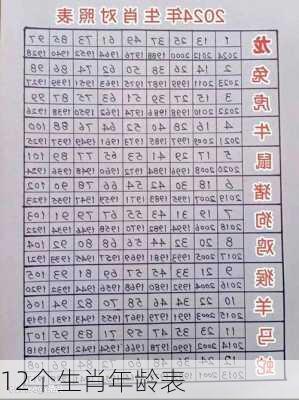 2024年生肖对照表
龙 1 13 25 37 49 61 73 85 97
2024 2012 2000 1988 1976 1964 1952 1940 1928
兔 2 14 26 38 50 62 74 86 98
2023 2011 1999 1987 1975 1963 1951 1939 1927
虎 3 15 27 39 51 63 75 87 99
2022 2010 1998 1986 1974 1962 1950 1938 1926
牛 4 16 28 40 52 64 76 88 100
2021 2009 1997 1985 1973 1961 1949 1937 1925
鼠 5 17 29 41 53 65 77 89 101
2020 2008 1996 1984 1972 1960 1948 1936 1924
猪 6 18 30 42 54 66 78 90 102
2019 2007 1995 1983 1971 1959 1947 1935 1923
狗 7 19 31 43 55 67 79 91 103
2018 2006 1994 1982 1970 1958 1946 1934 1922
鸡 8 20 32 44 56 68 80 92 104
2017 2005 1993 1981 1969 1957 1945 1933 1921
猴 9 21 33 45 57 69 81 93 105
2016 2004 1992 1980 1968 1956 1944 1932 1920
羊 10 22 34 46 58 70 82 94 106
2015 2003 1991 1979 1967 1955 1943 1931 1919
马 11 23 35 47 59 71 83 95 107
2014 2002 1990 1978 1966 1954 1942 1930 1918
蛇 12
12个生肖年龄表